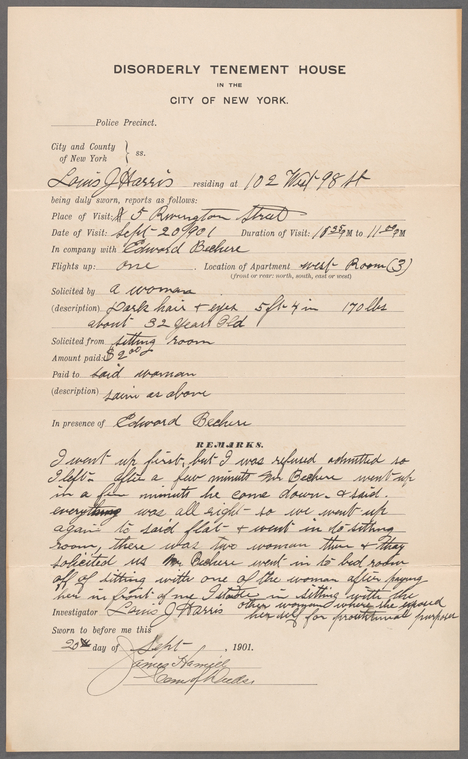 DISORDERLY TENEMENT HOUSE
IN THE
CITY OF NEW YORK.
Police Precinct.
City and County
of New York } ss.
Louis J Harris residing at 102 West 98 St
being duly sworn, reports as follows:
Place of Visit: # 5 Rivington Street
Date of Visit: Sept-20/901 Duration of Visit: PM to PM
In company with Edward Bechere
Flights up: one . Location of Apartment west Room (3)
(front or rear: north, south, east or west)
Solicited by a woman
(description) Dark hair + eyes 5 ft 4 in 170 lbs
about 32 Years Old
Solicited from sitting room
Amount paid: $2.00
Paid to said woman
(description) same as above
In presence of Edward Bechere
REMARKS.
I went up first, but I was refused admitted so
I left - after a few minute Mr. Bechere went up
in a few minute he come down - & said
everything was all right - so we went up
again to said flat - & went in to sitting
room, there was two woman there & they
solicited us Mr Bechere went in to bed room
off of sitting with one of the woman after paying
her in front of me I in sitting with the
other woman where she exposed
Investigator Louis J Harris her self for purpose
Sworn to before me this
20th day of Sept , 1901.
James
Com of Deeds.